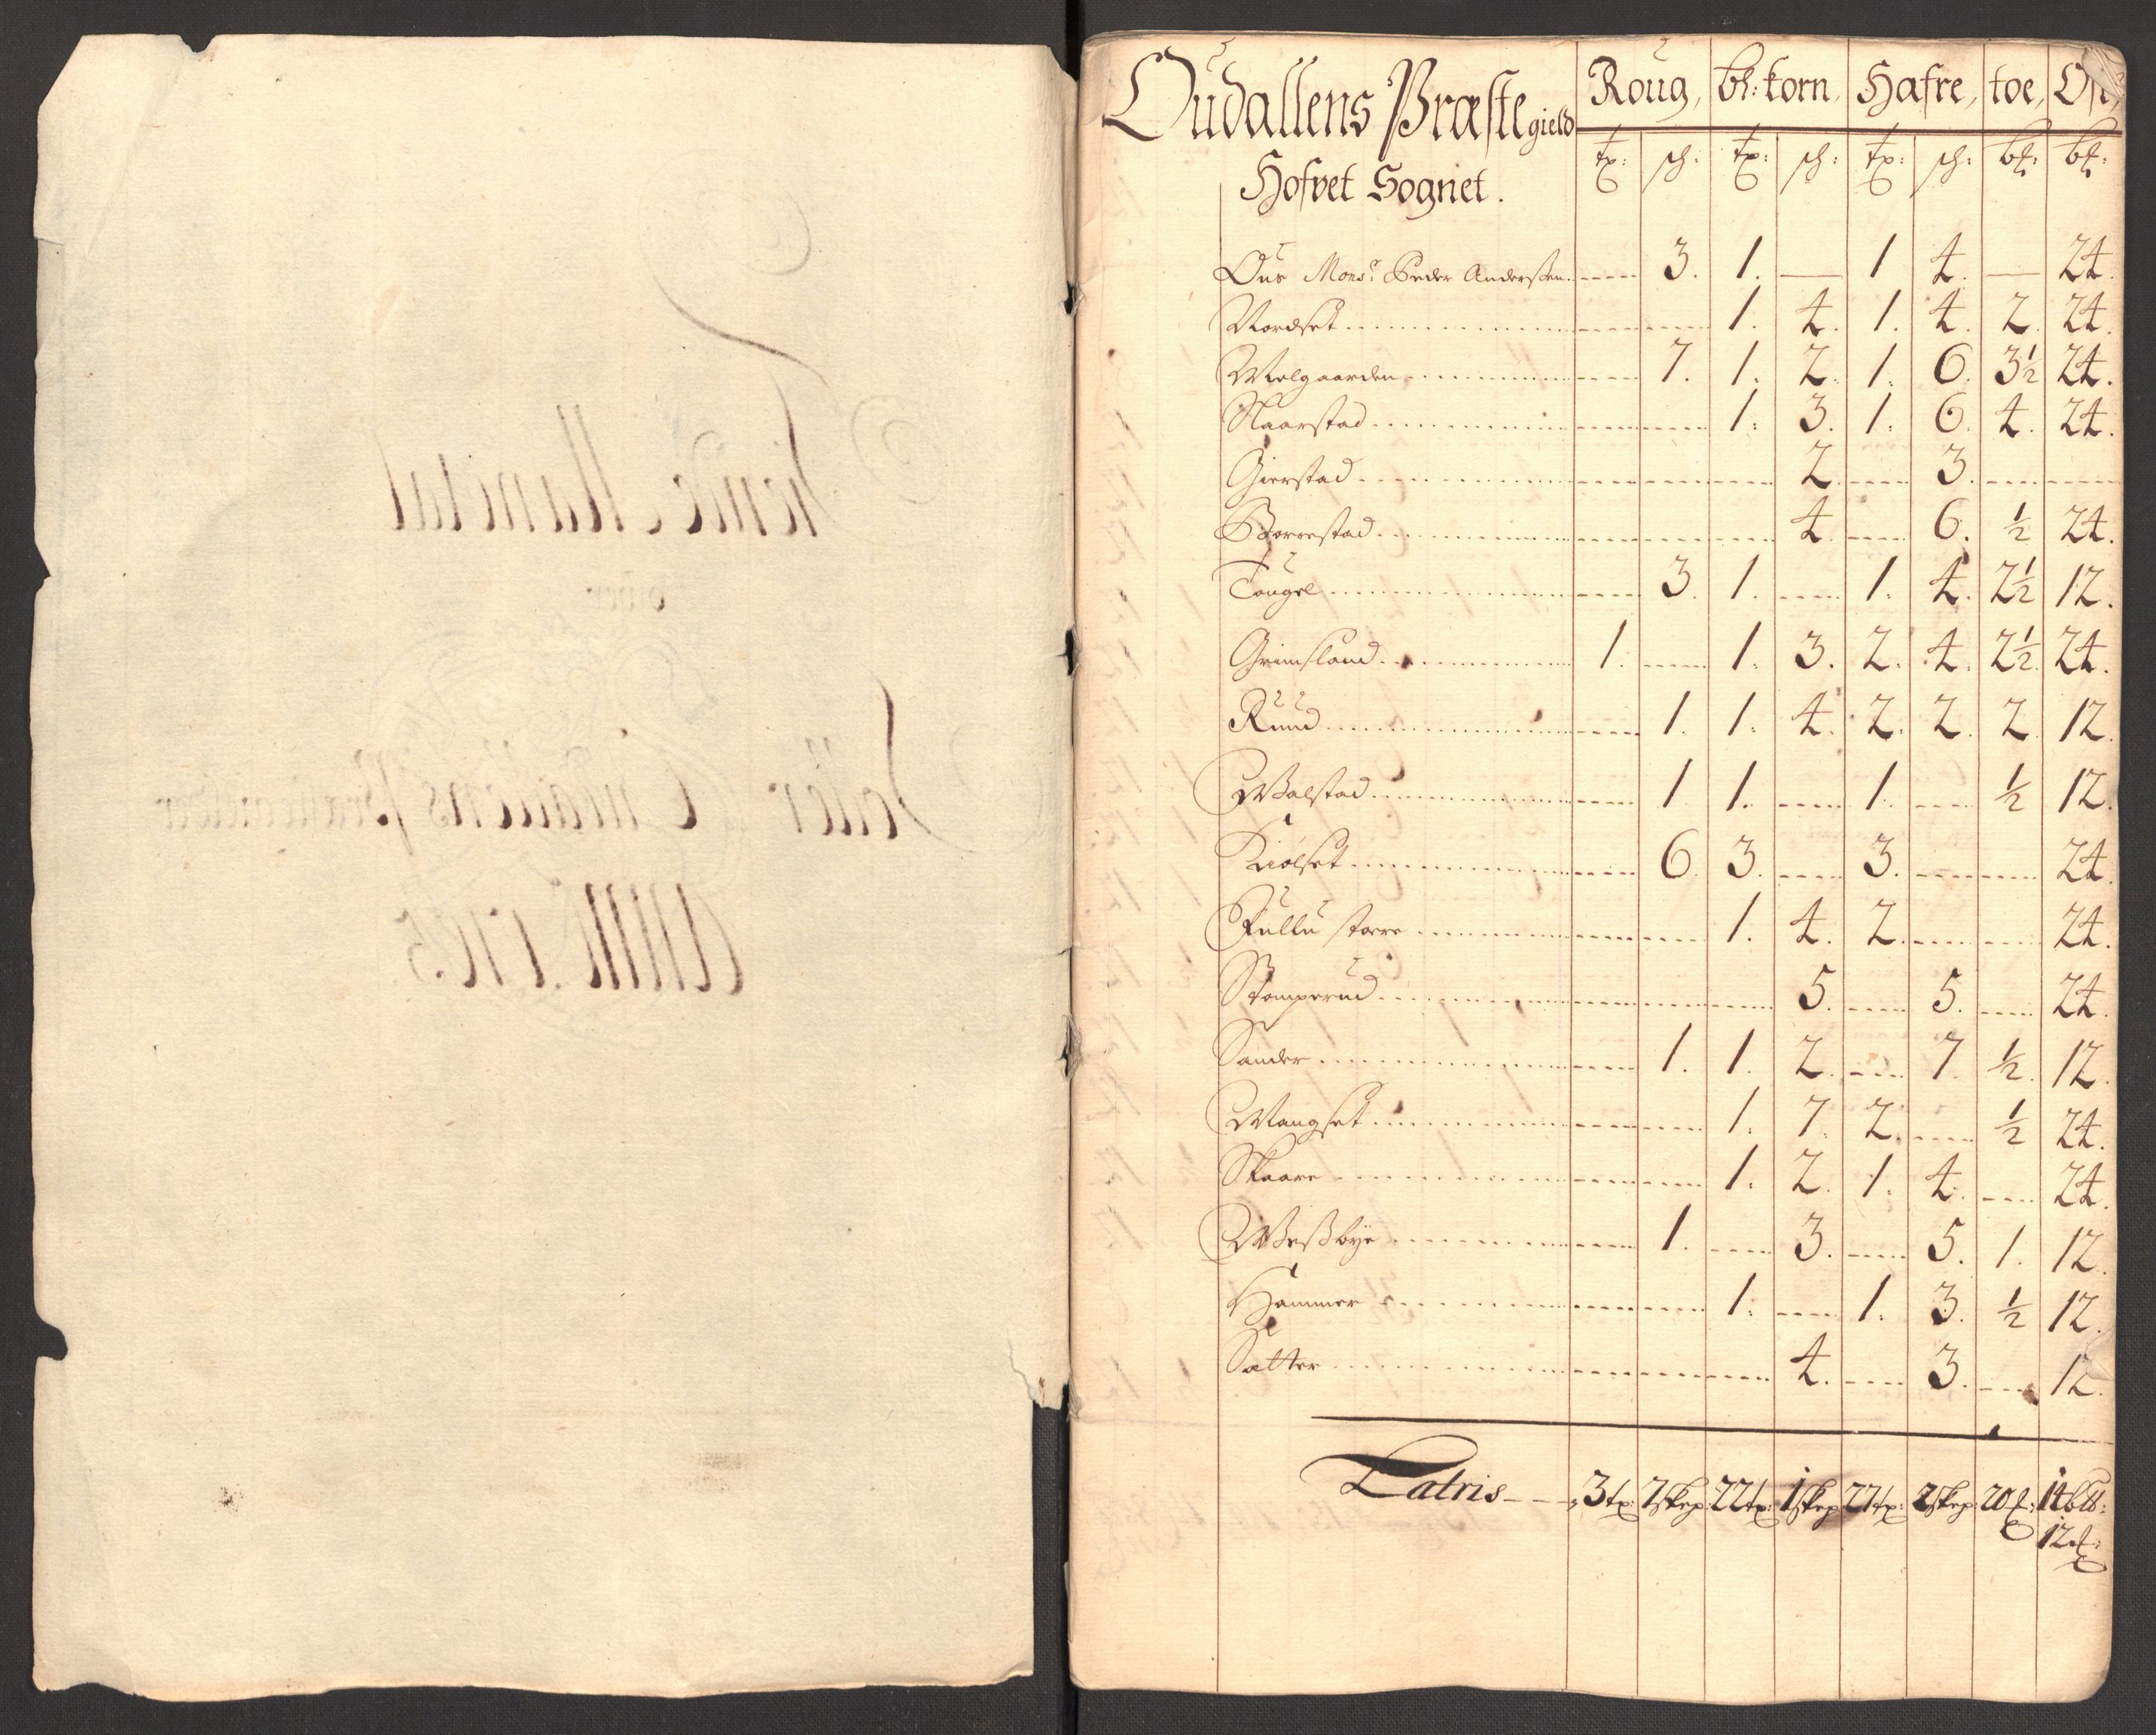 Oudallens Præstegield Roug, bl: korn, Hafre, toe, Ost,
Hofvet Sognet. tp: sch: tp: sch: tp: sch: bl: bl:
Ous Monsr Peder Anderßen ---- 3. 1. — 1 4. — 24.
Nordset 1. 4. 1. 4. 2. 24.
Melgaarden 7. 1. 2. 1. 6. 3½ 24.
Naarstad 1. 3. 1. 6. 4. 24.
Gierstad 2. 3.
Borrestad 4. 6. ½ 24.
Tougel 3. 1. 1. 4. 2½ 12.
Grimsland 1. 1. 3. 2. 4. 2½. 24.
Ruud 1. 1. 4. 2. 2. 2. 12.
Walstad 1 1. 1. ½ 12.
Kiölset 6. 3. 3. 24.
Fullu storre 1. 4. 2. 24.
Stomperud 5. 5. 24.
Sander 1. 1. 2. 7. ½. 12.
Mangset 1. 7. 2. ½ 24.
Skaare 1. 2. 1. 4. 24.
Weßbye 1. 3. 5. 1. 12.
Hammer 1. 1. 3. ½ 12.
Satter 4. 3. 12.
Latris 3tp: 7skep 22tp: 1skep 27tp: 2skep 20 14
12